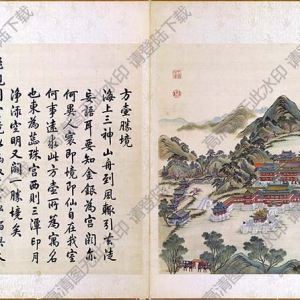 方壺勝境
海上三神山舟到風輒引去徒
妄語耳要知金銀為宮闕亦
何異人寰即境即仙自在我室
何事遠求此方壺所為寓名
也東為蕊珠宮西則三潭印月
淨淥空明又闢一勝境矣
高清图无此水印 请登陆下载